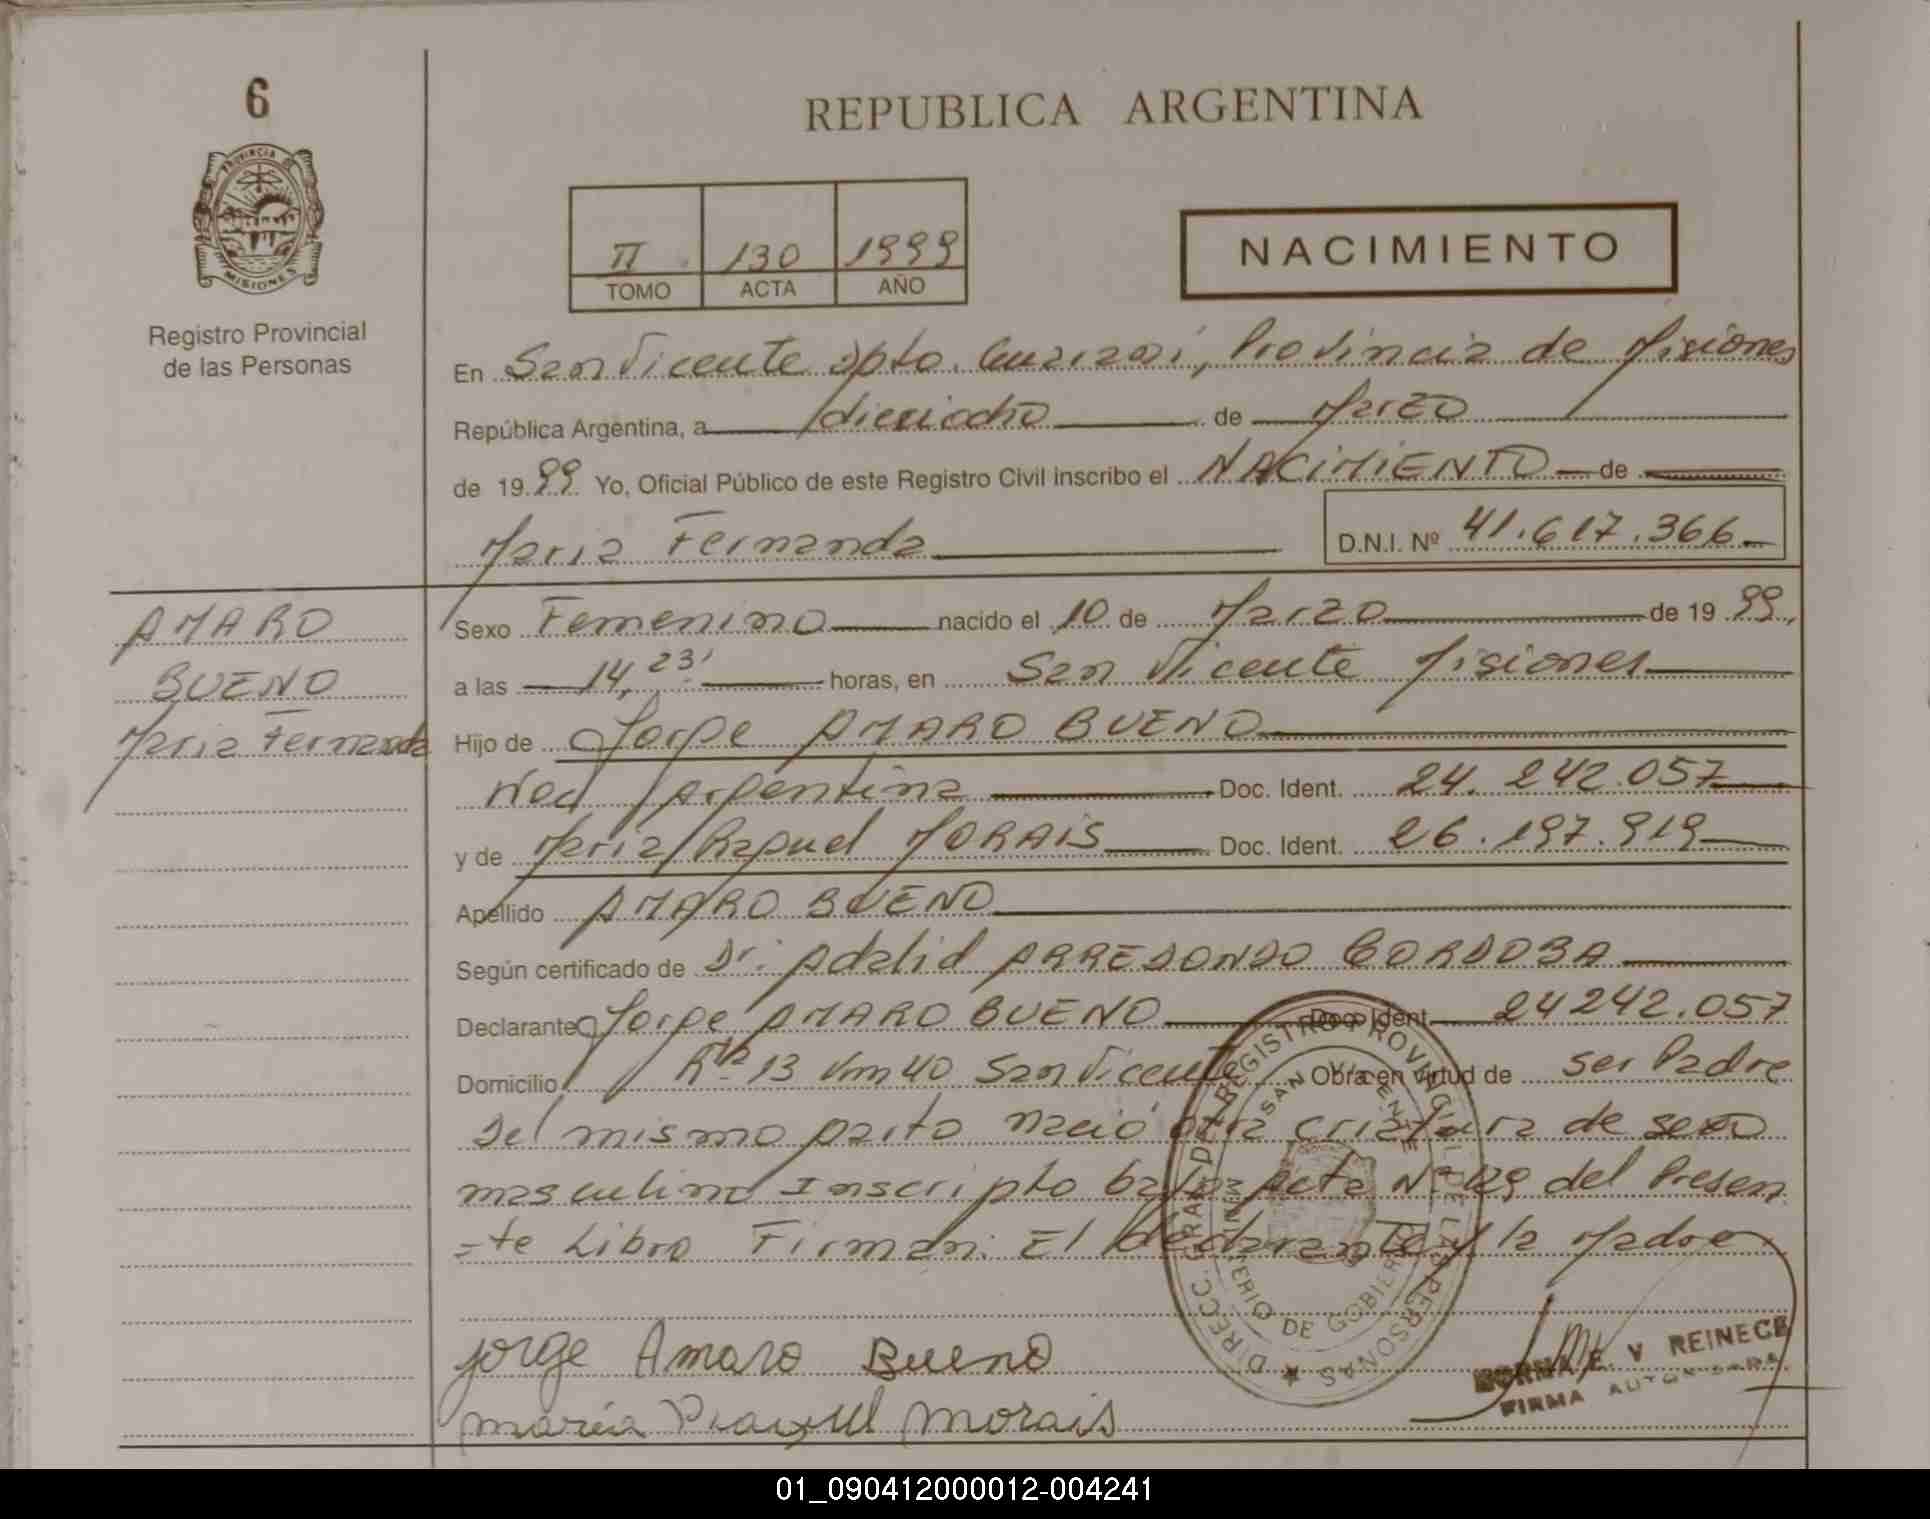 6
PROVINCIA DE
MISIONES
Registro Provincial
de las Personas
REPUBLICA ARGENTINA
II 130 1999
TOMO ACTA AÑO
NACIMIENTO
En San Vicente Dpto. Guaraní, Provincia de Misiones
República Argentina, a dieciocho de Marzo
de 1999 Yo, Oficial Público de este Registro Civil inscribo el NACIMIENTO de
Maria Fernanda D.N.I. Nº 41.617.366
AMARO
BUENO
Maria Fernanda
Sexo Femenino nacido el 10 de Marzo de 1999,
a las 14,23' horas, en San Vicente Misiones
Hijo de Jorge AMARO BUENO
Nac/ Argentina Doc. Ident. 24.242.057
y de Maria Raquel MORAIS Doc. Ident. 26.197.919
Apellido AMARO BUENO
Según certificado de Dr. Adalid ARREDONDO CORDOBA
Declarante Jorge AMARO BUENO Doc. Ident. 24242.057
Domicilio Rta 13 Km 40 San Vicente Obra en virtud de ser Padre
Del mismo parto nació otra criatura de sexo
masculino Inscripto bajo Acta Nº 129 del Presen
-te Libro Firman: El declarante y la Madre
jorge Amaro Bueno
maría Raquel morais
DIRECC. GRAL. DEL REGISTRO PROVINCIAL DE LAS PERSONAS
SAN VICENTE
MINISTERIO DE GOBIERNO
NORMA E. V REINECE
FIRMA AUTORIZADA
01_090412000012-004241